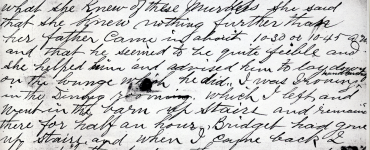 what she knew of these Murders she said
that she knew nothing further than
her father came in about 10-30 or 10-45 a.m.
and that he seemed to be quite feeble and
she helped him and advised him to lay down
on the lounge which he did. I was Ironing handkerchiefs
in the Dining room which I left and
went in the barn up Stairs and remained
there for half an hour. Bridget had gone
up Stairs and when I came back I